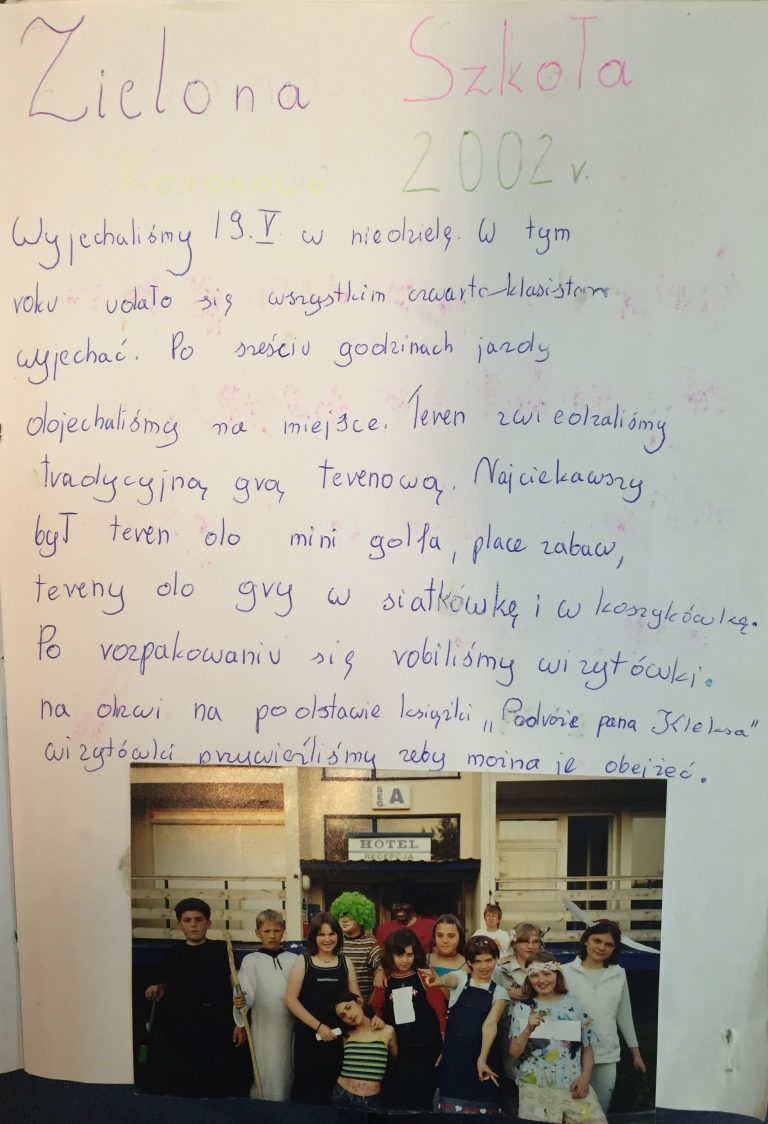 Zielona Szkoła
Koronowo 2002 r.
Wyjechaliśmy 19.V. w niedzielę. W tym
roku udało się wszystkim czwarto klasistom
wyjechać. Po sześciu godzinach jazdy
dojechaliśmy na miejsce. Teren zwiedzaliśmy
tradycyjną grą terenową. Najciekawszy
był teren do mini golfa, place zabaw,
tereny do gry w siatkówkę i w koszykówkę.
Po rozpakowaniu się robiliśmy wizytówki.
na drzwi na podstawie książki „Podróże pana Kleksa”
wizytówki przywieźliśmy żeby można je obejżeć.
SEG. A
HOTEL
RECEPCJA